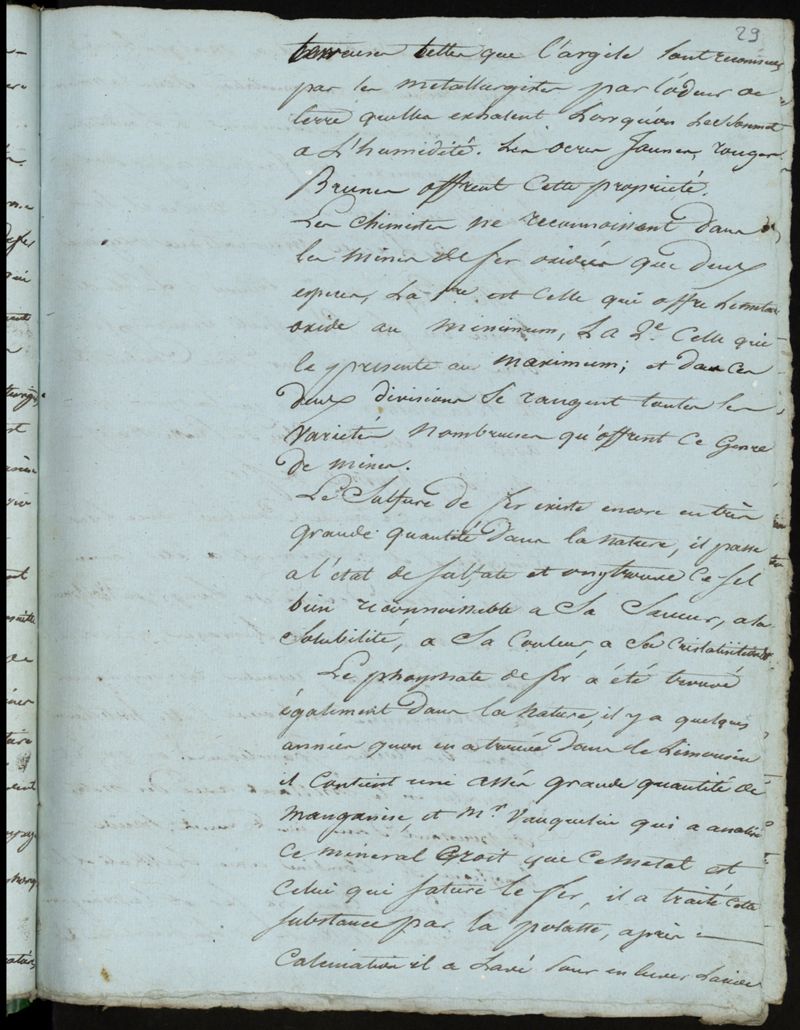 29
terreuses telles que l'argile sont reconnues
par les metallurgistes par l'odeur de
terre quelles exhalent Lorsqu'on Les soumet
a L'humidité. Les ocres Jaunes, rouges
Brunes offrent Cette propriété.
Les chimistes ne reconnoissent dans
les mines de fer oxidées que deux
especes, La 1re. est Celle qui offre Le metal
oxide au minimum, La 2e. Celle qui
le presente au maximum; et dans Ces
deux divisions Se rangent toutes les
varietés nombreuses qu'offrent Ce Genre
de mines.
Le Sulfure de fer existe encore en très
grande quantité dans la nature, il passe
a l'état de sulfate et on y trouve Ce sel
bien reconnoissable a Sa Saveur, a la
Solubilité, a Sa Couleur, a Sa Cristalisation
Le phosphate de fer a été trouvé
également dans la nature, il y a quelques
années quon en a trouvé dans le Limousin
il Contient une assés grande quantité de
manganèse, et Mr. Vauquelin qui a analisé
Ce minéral Croit que Ce metal est
Celui qui sature le fer, il a traité Cette
substance par la potasse, après
Calcination il a Lavé pour enlever L'acide